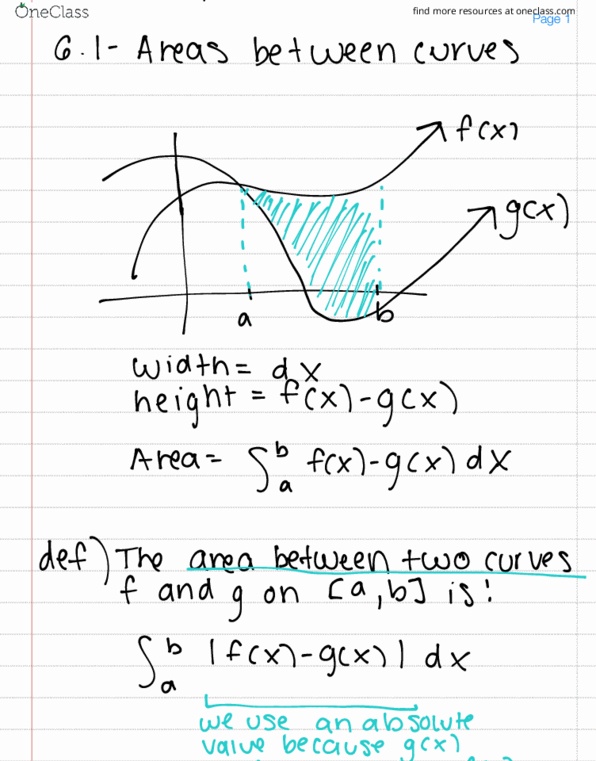 OneClass
find more resources at oneclass.com
Page 1
6.1- Areas between curves
f(x)
g(x)
a
b
width = dx
height = f(x)-g(x)
Area = ∫ₐᵇ f(x)-g(x) dx
def) The area between two curves
f and g on [a,b] is:
∫ₐᵇ |f(x)-g(x)| dx
we use an absolute
value because g(x)